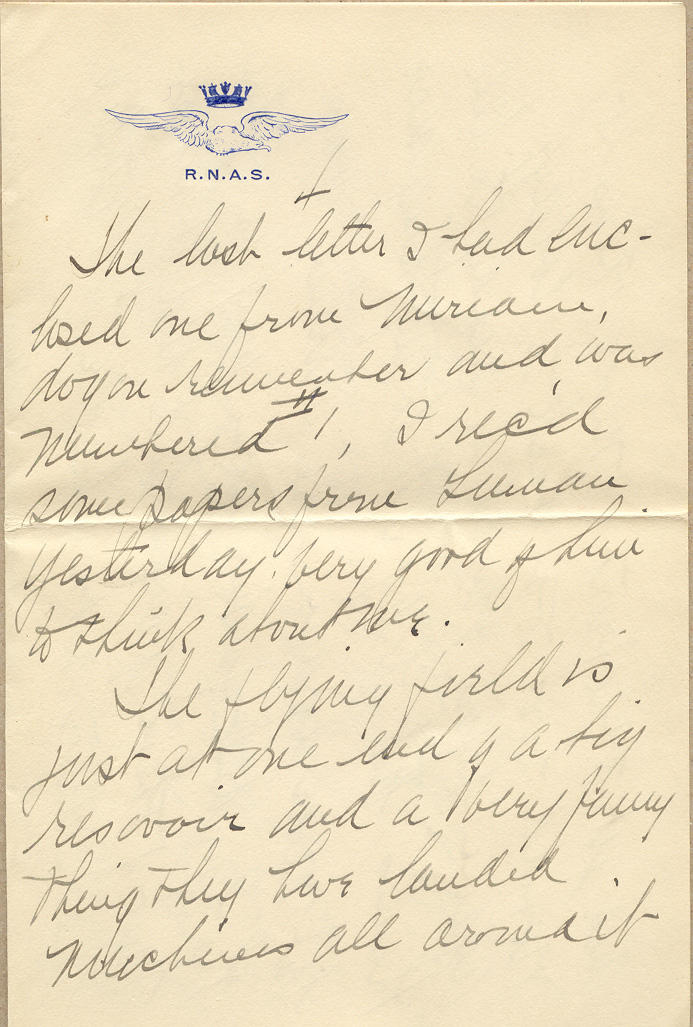 R.N.A.S.
4
The last letter I had enc-
losed one from Miriam,
do you remember and was
numbered #1, I rec'd
some papers from Luman
yesterday. Very good of him
to think about me.
The flying field is
just at one end of a big
resovoir and a very funny
thing they have landed
machines all around it